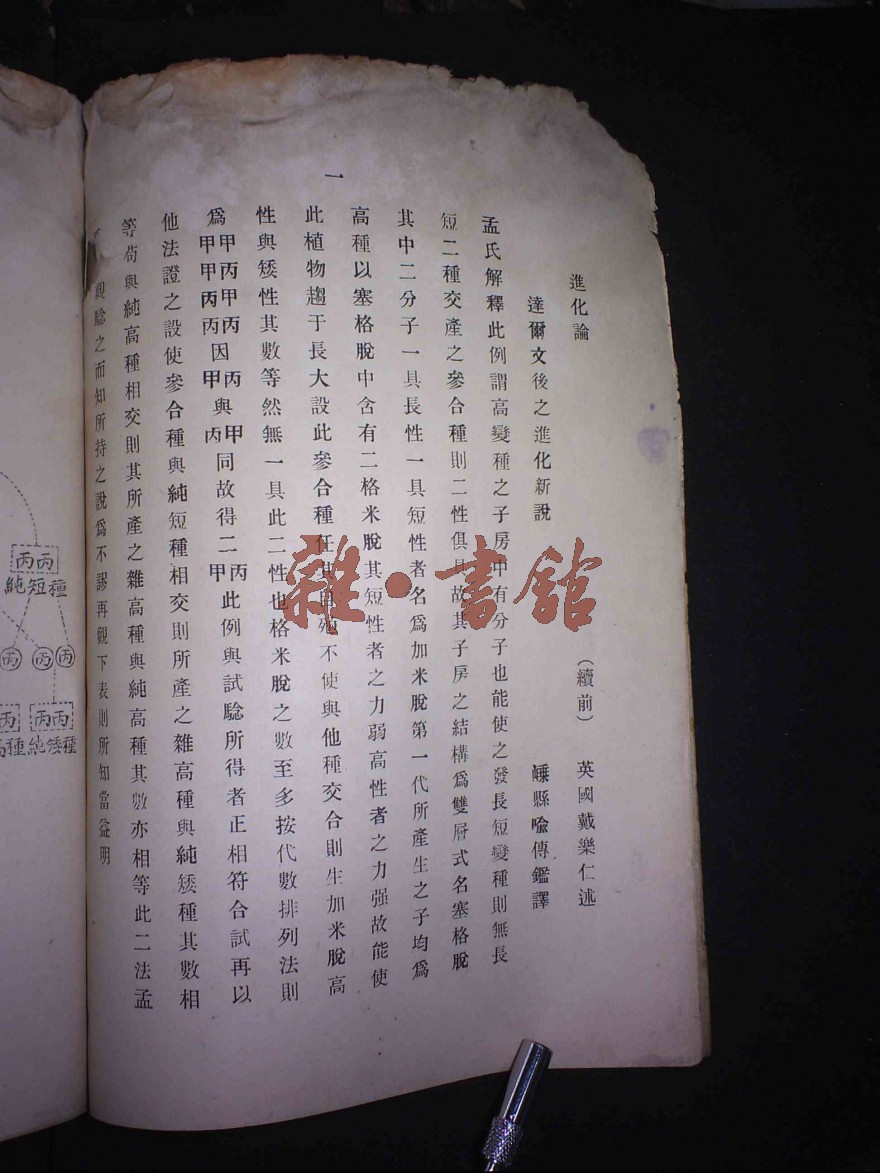 進化論 (續前) 英國戴樂仁述
達爾文後之進化新說 嵊縣喩傳鑑譯
孟氏解釋此例謂高變種之子房中有分子也能使之發長短變種則無長
短二種交產之參合種則二性俱具故其子房之結構爲雙層式名塞格脫
其中二分子一具長性一具短性者名爲加米脫第一代所產生之子均爲
高種以塞格脫中含有二格米脫其短性者之力弱高性者之力强故能使
此植物趨于長大設此參合種任其自殖不使與他種交合則生加米脫高
性與矮性其數等然無一具此二性也格米脫之數至多按代數排列法則
爲甲甲丙甲甲丙丙丙因甲丙與丙甲同故得二甲丙此例與試驗所得者正相符合試再以
他法證之設使參合種與純短種相交則所產之雜高種與純矮種其數相
等苟與純高種相交則其所產之雜高種與純高種其數亦相等此二法孟
親驗之而知所持之說爲不謬再觀下表則所知當益明
一
丙丙
純短種
丙 丙 丙
丙 丙丙
高種 純矮種
雜·書館